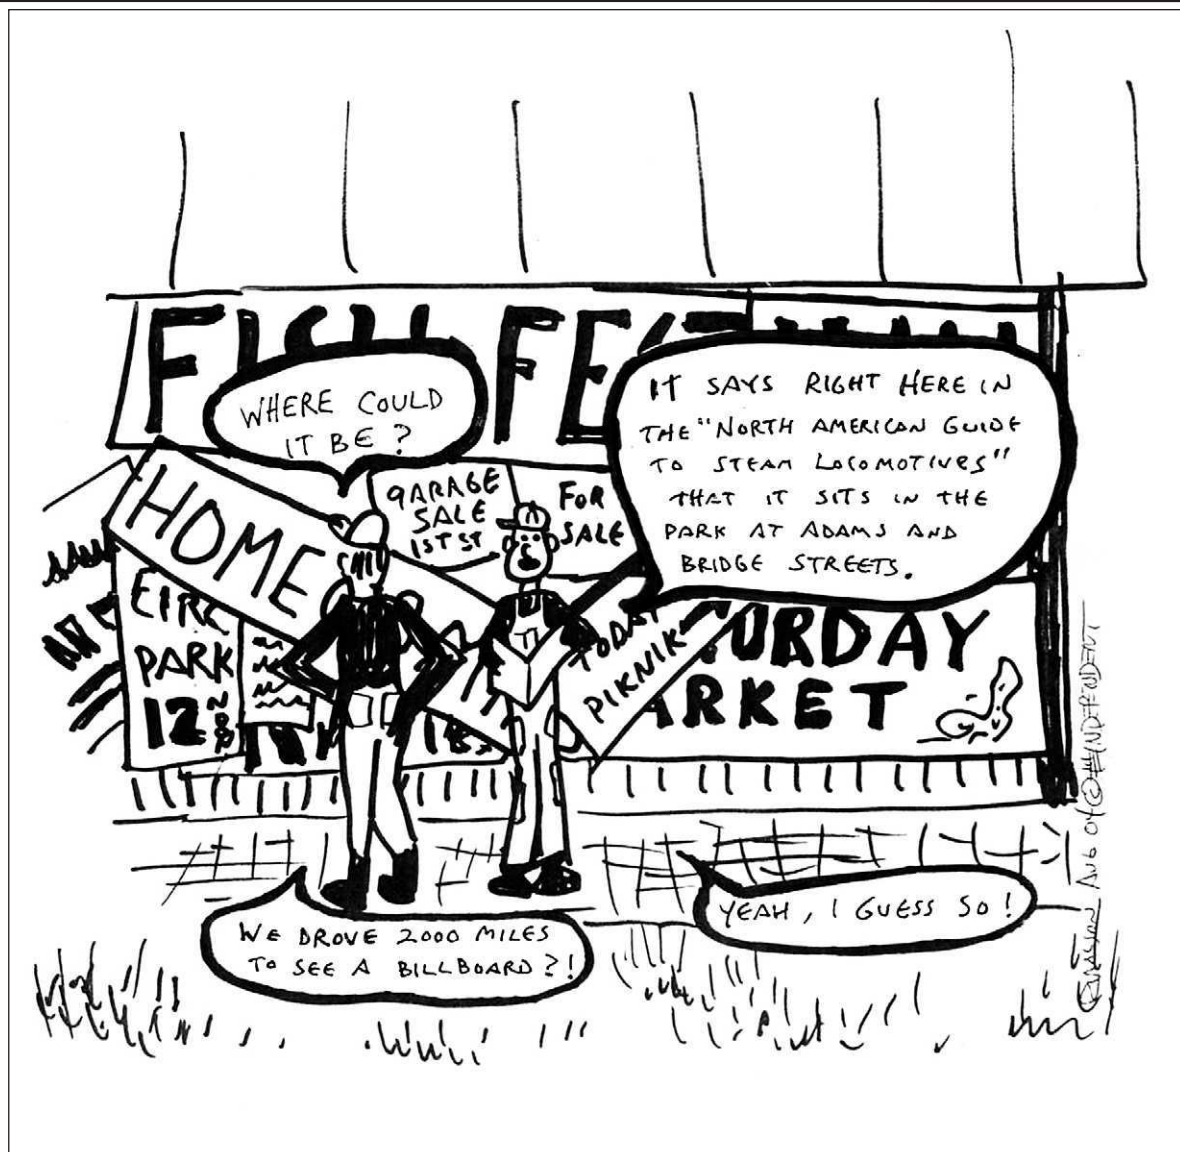 FISH FEST
WHERE COULD
IT BE?
IT SAYS RIGHT HERE IN
THE "NORTH AMERICAN GUIDE
TO STEAM LOCOMOTIVES"
THAT IT SITS IN THE
PARK AT ADAMS AND
BRIDGE STREETS.
HOME
GARAGE
SALE
1ST ST
FOR
SALE
EIRC
PARK
12 NOON
TODAY
PIKNIK
TURDAY
ARKET
WE DROVE 2000 MILES
TO SEE A BILLBOARD?!
YEAH, I GUESS SO!